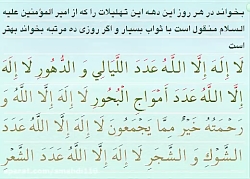 بخواند در هر روز این دهه این تهلیلات را که از امیر المؤمنین علیه
السلام منقول است با ثواب بسیار و اگر روزی ده مرتبه بخواند بهتر
است
لَا إِلَهَ إِلَّا اللَّهُ عَدَدَ اللَّيَالِي وَ الدُّهُورِ لَا إِلَهَ
إِلَّا اللَّهُ عَدَدَ أَمْوَاجِ الْبُحُورِ لَا إِلَهَ إِلَّا اللَّهُ وَ
رَحْمَتُهُ خَيْرٌ مِمَّا يَجْمَعُونَ لَا إِلَهَ إِلَّا اللَّهُ عَدَدَ
الشَّوْكِ وَ الشَّجَرِ لَا إِلَهَ إِلَّا اللَّهُ عَدَدَ الشَّعْرِ